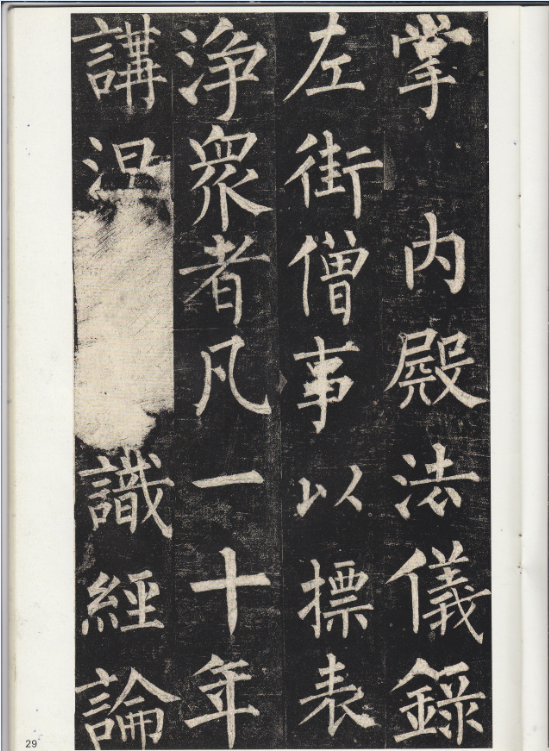 掌 内殿法儀錄
左街僧事以標表
淨衆者凡一十年
講涅 識經論
29